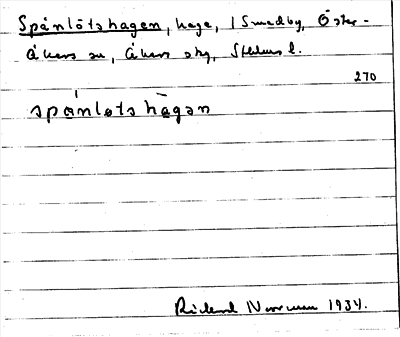 Spånlötshagen, hage, i Smedby, Öster-
åkers sn, Åkers skg, Sthlms l.
270
spånløtshagən
Rickard Norrman 1934.